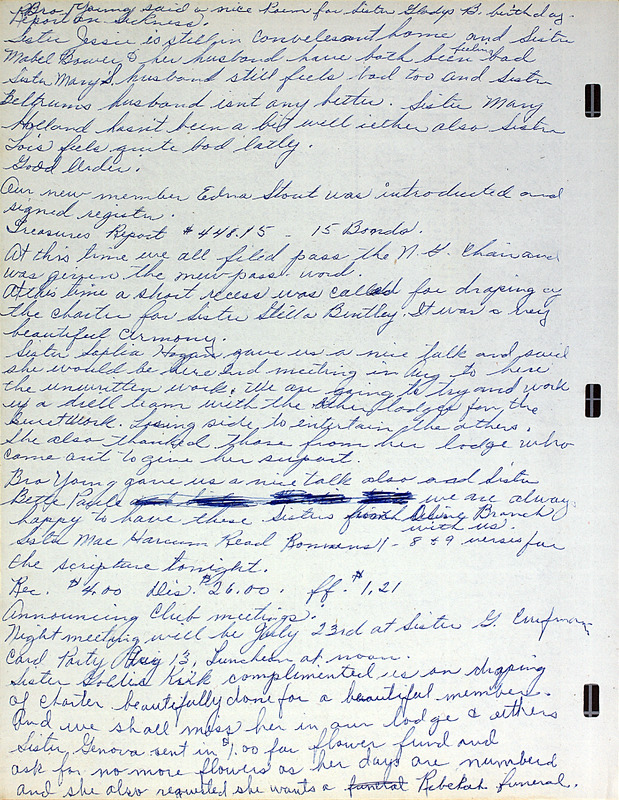 Bro Young said a nice Poem for Sister Gladys B. birthday.
Report on Sickness.
Sister Jessie is still in convelesant home and Sister
Mabel Bower & her husband have both been feeling bad
Sister Mary S. husband still feels bad too and Sister
Beltrums husband isnt any better. Sister Mary
Holland hasn't been a bit well iether also Sister
Lois feels quite bad latly.
Good Order.
Our new member Edna Stout was introducted and
signed registr.
Treasures Report $448.15 - 15 Bonds.
At this time we all filed pass the N.G. Chair and
was given the new pass word.
At this time a short recess was called for draping of
the charter for Sister Stella Bentley. It was a very
beautiful cermony.
Sister Sophia Hogan gave us a nice talk and said
she would be here 2nd meeting in Aug to here
the unwritten work. We are going to try and work
up a drill team with the other lodges for the
Secret Work. Losing side to entertain the others.
She also thanked those from her lodge who
came out to give her support.
Bro Young gave us a nice talk also and Sister
Bette Pauls we are alway
happy to have these Sisters from Olive Branch
with us.
Sista Mae Harcum Read 11 - 8 & 9 verses for
the scripture tonight.
Rec. $4.00 Dis. $26.00. ff. $1.21
Announcing Club meetings.
Night meeting will be July 23rd at Sister G.
Card Party Aug 13, Luncheon at noon.
Sister Goldie Kirk complemented us on draping
of charter beautifully done for a beautiful member.
And we shall miss her in our lodge & others
Sister Genova sent in $1.00 for flower fund and
ask for no more flowers as her days are numberd
and she also requested she wants a funeral Rebekah funeral.